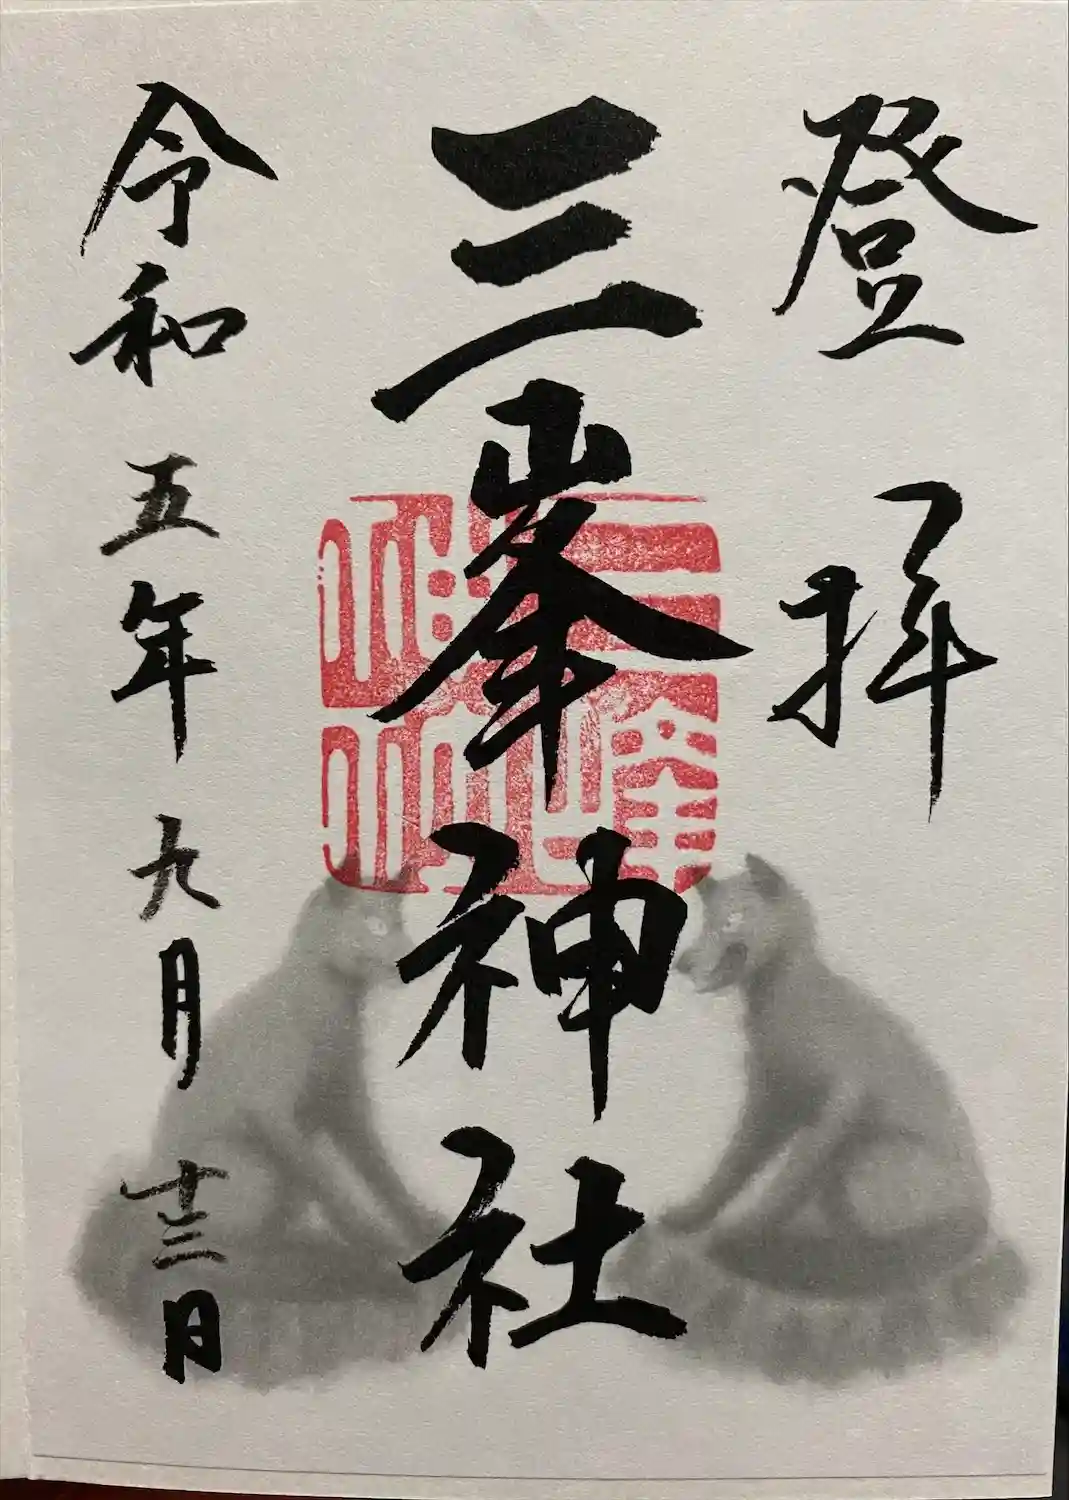 登拝
三峯神社
令和五年九月十三日